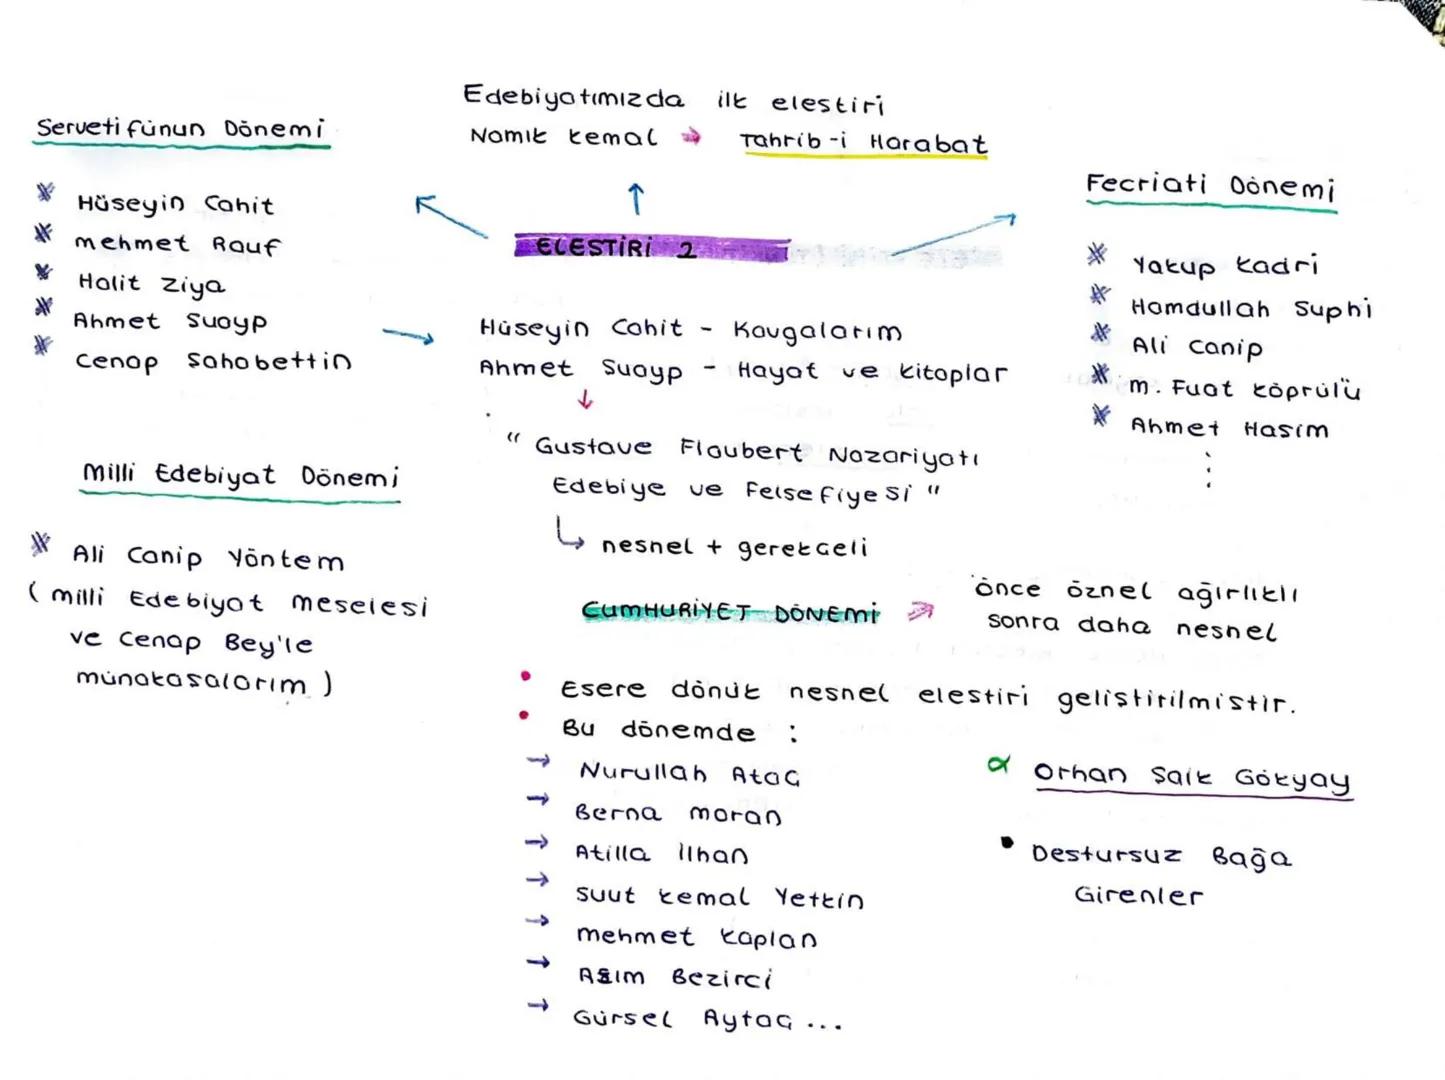 Edebiyatımızda ilk elestiri
Namık Kemal → Tahrib-i Harabat
Serveti fünun Dönemi
* Hüseyin Cahit
* mehmet Rauf
* Halit Ziya
* Ahmet Suayp
* Cenap Sahabettin
ELESTİRİ 2
Fecriati Dönemi
* Yakup Kadri
* Hamdullah Suphi
* Ali Canip
* m. Fuat Köprülü
* Ahmet Hasim
Hüseyin Cahit - Kavgalarım
Ahmet Suayp - Hayat ve Kitaplar
" Gustave Flaubert Nazariyatı
Edebiye ve Felsefiyesi "
↳ nesnel + gerekceli
Milli Edebiyat Dönemi
* Ali Canip Yöntem
( milli Edebiyat meselesi
ve Cenap Bey'le
münakasalarım )
CUMHURİYET DÖNEMİ → önce öznel ağırlıklı
sonra daha nesnel
• Esere dönük nesnel elestiri geliştirilmistir.
• Bu dönemde :
→ Nurullah Atac
→ Berna moran
→ Atilla ilhan
→ Suut Kemal Yetkin
→ mehmet Kaplan
→ Asım Bezirci
→ Gürsel Aytac ...
α Orhan Saik Gökyay
• Destursuz Bağa
Girenler